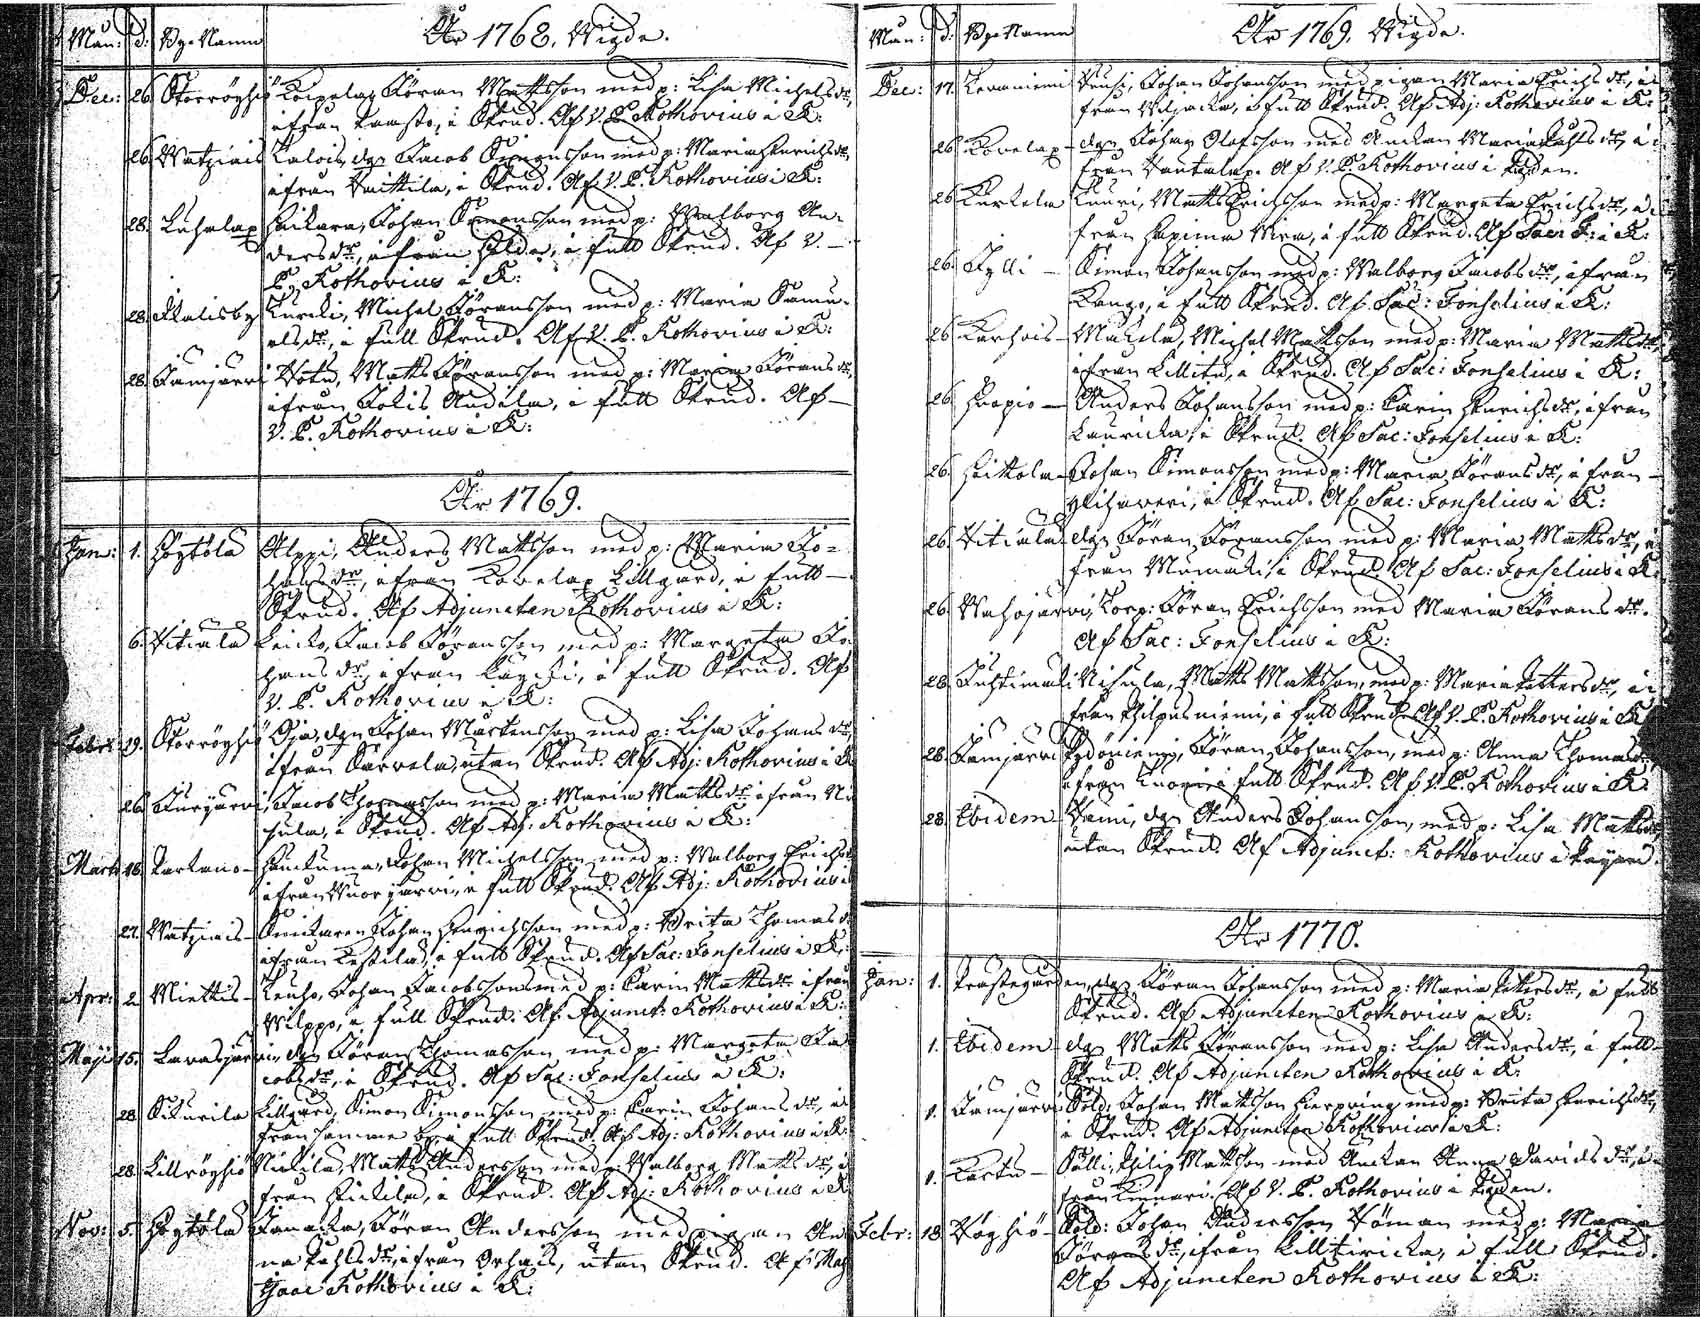 Mån: d: By-Namn År 1768. Wigde.
Dec: 26. Storröghiö Korpela, Jöran Mattsson med p: Lisa Michelsdr,
ifrån Kaasto, i Skrud. Af V. P. Kothovius i K:
26. Watziais dgn Jacob Simonsson med p: Maria Henrichsdr,
ifrån Vaittila, i Skrud. Af V. P. Kothovius i K:
28. Luhalax Johan Simonsson med p: Walborg An-
dersdr, ifrån i full Skrud. Af V.
P. Kothovius i K:
28. Kalisby Kurki, Michel Jöransson med p: Maria Samu-
elsdr, i full Skrud. Af V. P. Kothovius i K:
28. Jämjärvi Matts Jöransson med p: Maria Jöransdr,
ifrån Andila, i full Skrud. Af
V. P. Kothovius i K:
År 1769.
Jan: 1. Höytölä Alppi, Anders Mattsson med p: Maria Jo-
hansdr, ifrån Kovelax Lillgård, i full
Skrud. Af Adjuncten Kothovius i K:
6. Vitiälä Jacob Jöransson med p: Margeta Jo-
hansdr, ifrån i full Skrud. Af
V. P. Kothovius i K:
Febr: 19. Storröghiö Oja, dgn Johan Mårtensson med p: Lisa Johansdr,
ifrån Sarvela, utan Skrud. Af Adj: Kothovius i K
26. Jacob Thomasson med p: Maria Mattsdr ifrån Ni
sula, i Skrud. Af Adj: Kothovius i K:
Mart: 18. Partano Johan Michelsson med p: Walborg Erichs
ifrån Vuorjärvi, i full Skrud. Af Adj: Kothovius i
27. Watziais Johan Henrichsson med p: Brita Thomas
ifrån Kestilä, i full Skrud. Af Sac: Fonselius i K:
Apr: 2. Miettis Johan Jacobsson med p: Carin Mattsdr ifrån
Wilppo, i full Skrud. Af Adjunct: Kothovius i K:
Maji 15. Lavasjärvi, dgn Jöran Thomasson med p: Margeta Ja
cobsdr, i Skrud. Af Sac: Fonselius i K:
28. Sikurila Lillgård, Simon Simonsson med p: Carin Johansdr, i
från samma by, i full Skrud. Af Adj: Kothovius i K:
28. Lillröghiö Nickilä, Matts Andersson med p: Walborg Mattsdr, i
från Heickilä, i Skrud. Af Adj: Kothovius i K
Nov: 5. Höytölä Jöran Andersson med pigan An
na Påhlsdr, ifrån Orhais, utan Skrud. Af Mag
Isaac Kothovius i K:
Mån: d: By-Namn År 1769. Wigde.
Dec: 17. Keraniemi Johan Johansson med pigan Maria Erichsdr, i
från i full Skrud. Af Adj: Kothovius i K:
26. Kovelax dgn Johan Olofsson med Änkan Maria Påhlsdr, i
från Vantalax. Af V. P. Kothovius i
26. Kurkela Lauri, Matts Erichsson med p: Margeta Erichsdr, i
från i full Skrud. Af Sac: F: i K:
26. Jylli Simon Johansson med p: Walborg Jacobsdr, ifrån
Kango, i full Skrud. Af Sac: Fonselius i K:
26. Karhois Mäkelä, Michel Mattsson med p: Maria Mattsdr,
ifrån i Skrud. Af Sac: Fonselius i K:
26. Huopio Anders Johansson med p: Carin Henrichsdr, ifrån
i Skrud. Af Sac: Fonselius i K:
26. Heittola Johan Simonsson med p: Maria Jöransdr, ifrån
i Skrud. Af Sac: Fonselius i K:
26. Vitiälä dgn Jöran Jöransson med p: Maria Mattsdr, i
från i Skrud. Af Sac: Fonselius i K
26. Vahojärvi, Torp: Jöran Erichsson med Maria Jöransdr.
Af Sac: Fonselius i K:
28. Juhtimäki Nisula, Matts Mattsson, med p: Maria Pettersdr, i
från Philpusniemi, i full Skrud. Af V. P. Kothovius i K
28. Jämjärvi Jöran Johansson, med p: Anna Thomasdr,
ifrån i full Skrud. Af V. P. Kothovius i K:
28. Ibidem dgn Anders Johansson, med p: Lisa Mattsdr,
utan Skrud Af Adjunct: Kothovius i
År 1770.
Jan: 1. Prästegården, dgn Jöran Johansson med p: Maria Pettersdr, i full
Skrud. Af Adjuncten Kothovius i K:
1. Ibidem dgn Matts Jöransson med p: Lisa Andersdr, i full
Skrud. Af Adjuncten Kothovius i K:
1. Jämjärvi Sold: Johan Mattsson med p: Brita Henrichsdr,
i Skrud. Af Adjuncten Kothovius i K:
1. Kartu Sälli, Philip Mattsson med Änkan Anna Davidsdr, i
från Kinnari. Af V. P. Kothovius i
Febr: 18. Röghiö Sold: Johan Andersson Böman med p: Maria
Jöransdr, ifrån i full Skrud.
Af Adjuncten Kothovius i K: